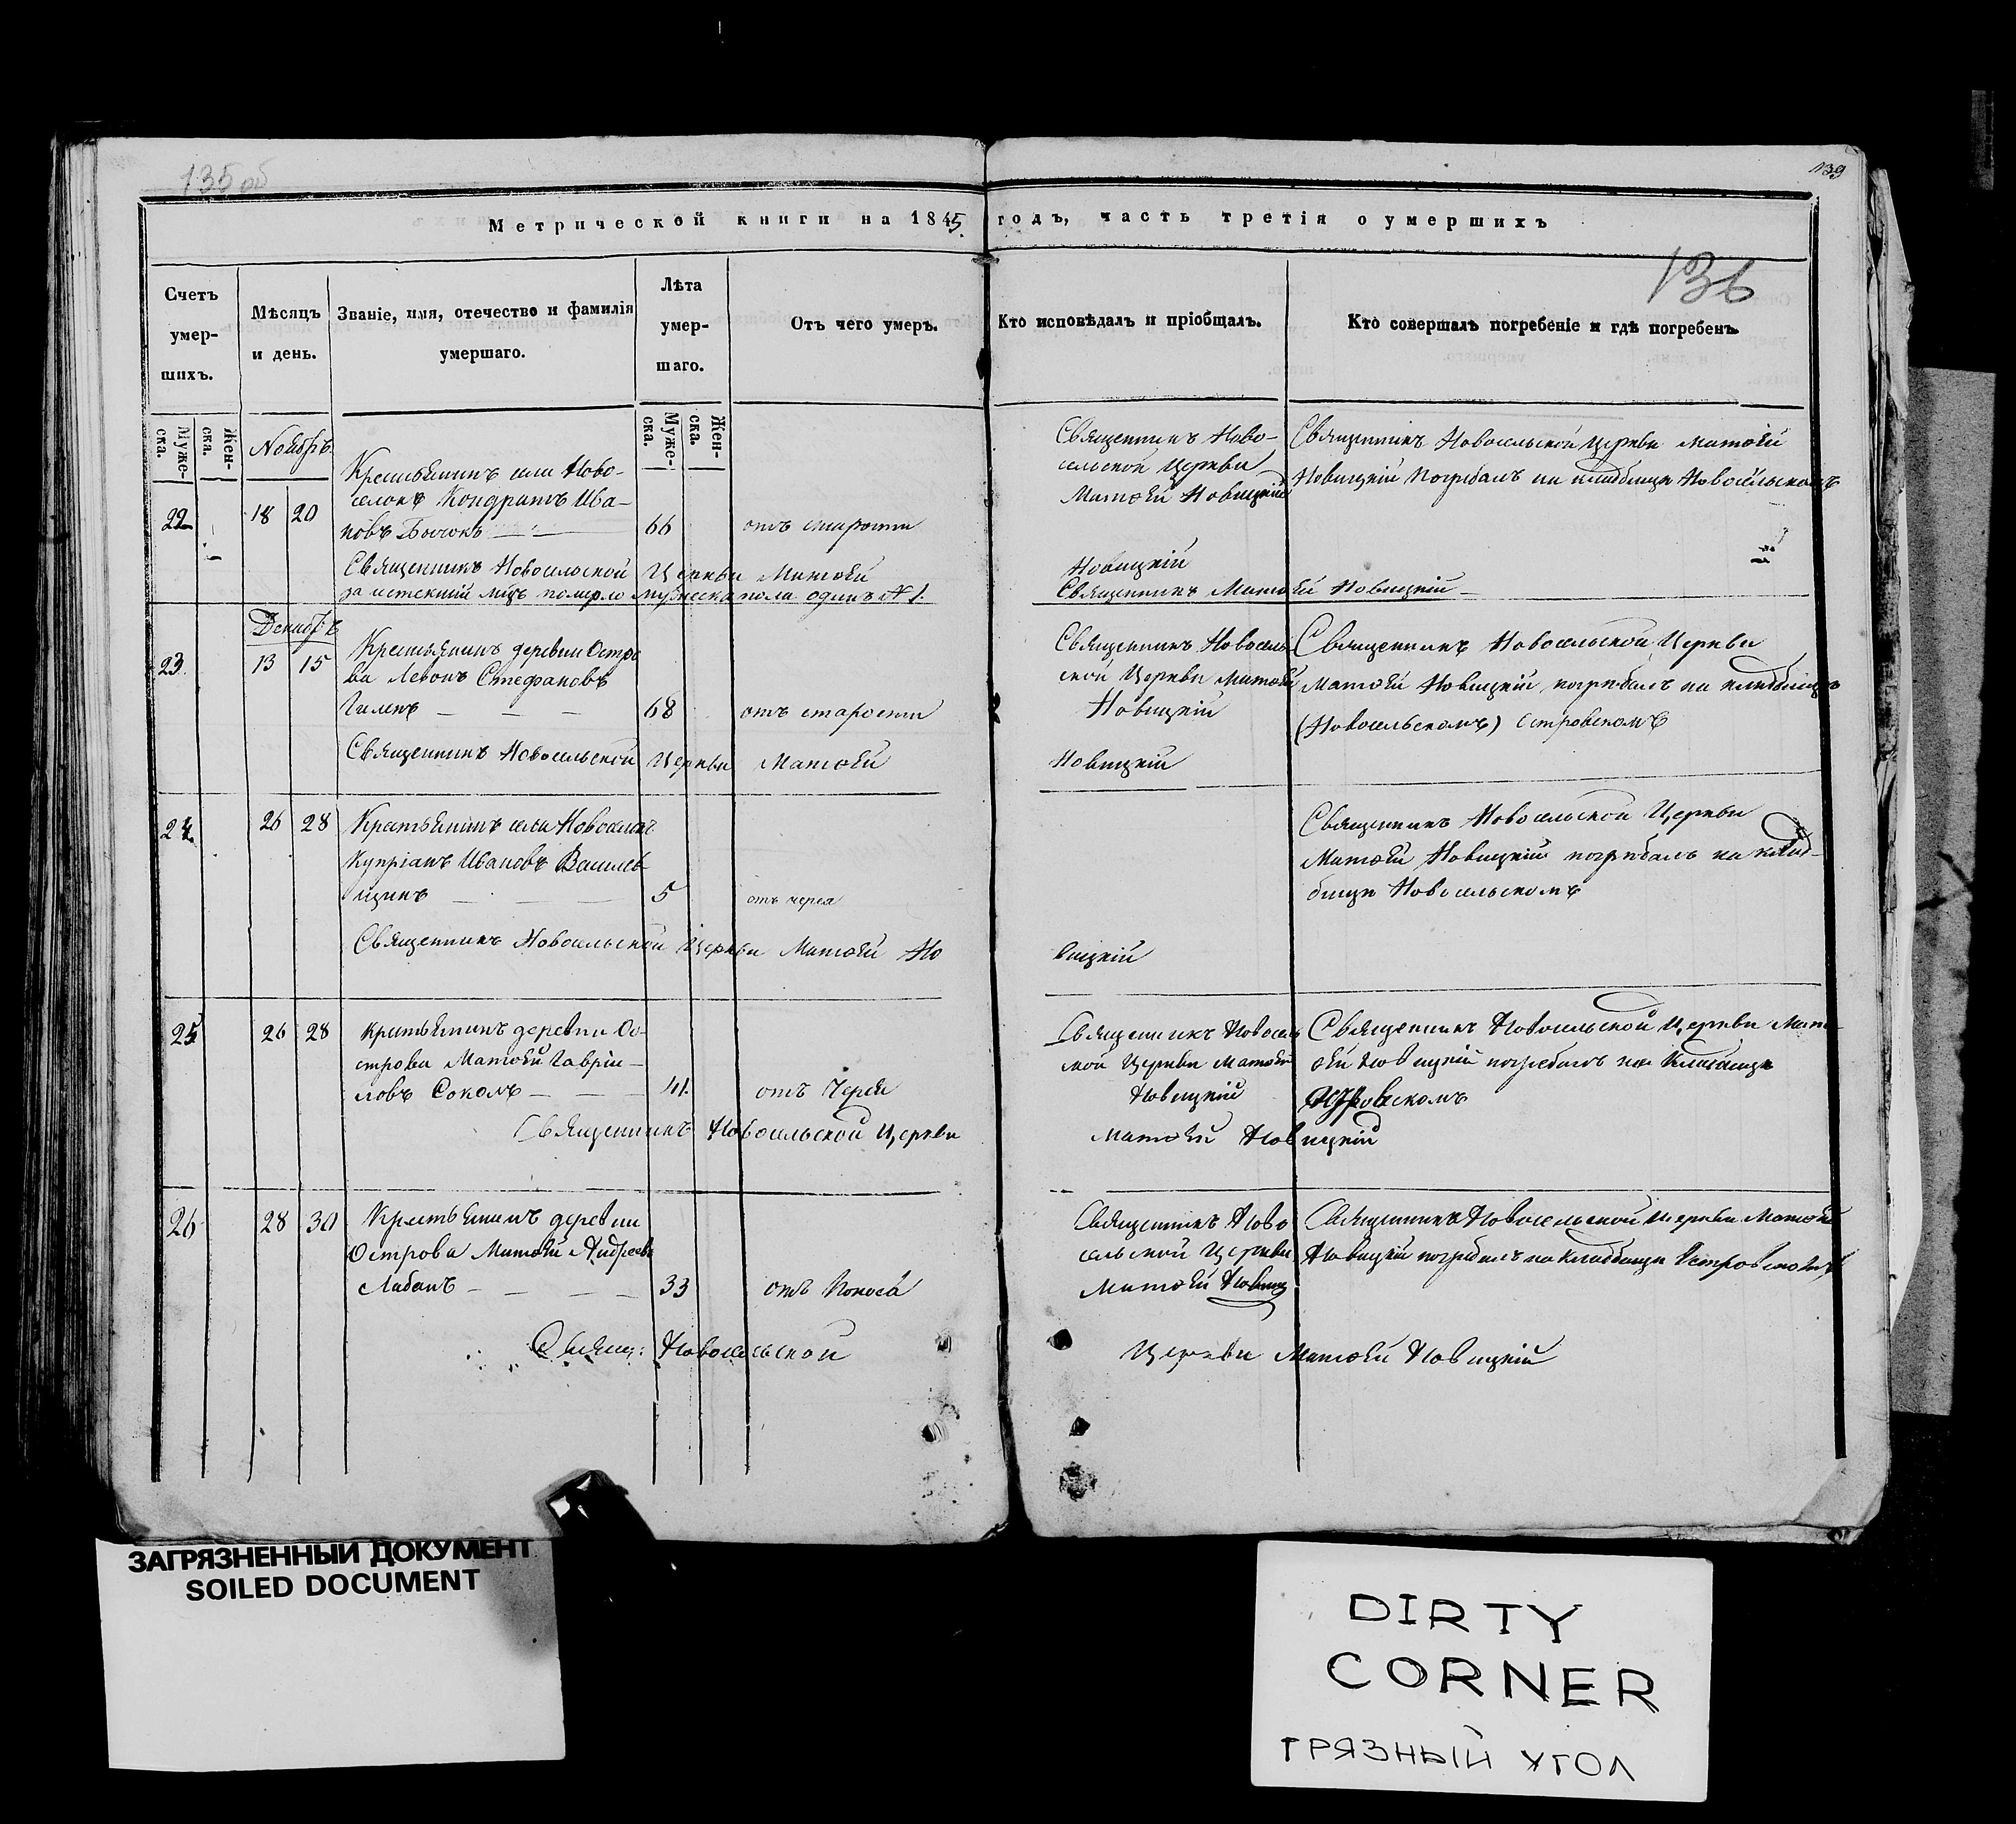 135 об
139
Метрической книги на 1845 годъ, часть третія о умершихъ
136
Счетъ умер- шихъ.
Мѣсяцъ и день.
Званіе, имя, отечество и фамилія умершаго.
Лѣта умер- шаго.
Отъ чего умеръ.
Кто исповѣдалъ и пріобщалъ.
Кто совершалъ погребеніе и гдѣ погребенъ.
Муже- ска.
Жен- ска.
Муже- ска.
Жен- ска.
Ноябрь
22
18 20
Крестьянинъ села Ново-
селокъ Кондратъ Ива-
новъ Бычокъ
66
отъ старости
Священникъ Ново-
сельской Церкви
Матѳей Новицкій
Священникъ Новосельской Церкви Матѳей
Новицкій Погребалъ на кладбищѣ Новосельскомъ
Священникъ Новосельской Церкви Матѳей Новицкій
за истекшій мѣцъ померло мужеска пола одинъ №1.
Священникъ Матѳей Новицкій
Декабрь
23
13 15
Крестьянинъ деревни Остро
ва Леонъ Стефановъ
68
отъ старости
Священникъ Новосель
ской Церкви Матѳей
Новицкій
Священникъ Новосельской Церкви
Матѳей Новицкій погребалъ на кладбищѣ
(Новосельскомъ) Островскомъ
Священникъ Новосельской Церкви Матѳей Новицкій
24
26 28
Крестьянинъ села Новоселокъ
Купріанъ Ивановъ Василев
щикъ
5
отъ черея
Священникъ Новосельской Церкви
Матѳей Новицкій погребалъ на клад-
бищѣ Новосельскомъ
Священникъ Новосельской Церкви Матѳей Но
вицкій
25
26 28
Крестьянинъ деревни Ос-
трова Матѳей Гаврии-
ловъ Соколъ
41.
отъ Черея
Священникъ Новосель
ской Церкви Матѳей
Новицкій
Священникъ Новосельской Церкви Мат-
ѳей Новицкій погребалъ на Кладбищѣ
Островскомъ
Священникъ Новосельской Церкви
Матѳей Новицкій
26
28 30
Крестьянинъ деревни
Острова Матѳей Андреевъ
Лабанъ
33
отъ Поноса
Священникъ Ново
сельской Церкви
Матѳей Новиц
Священникъ Новосельской Церкви Матѳей
Новицкій погребалъ на Кладбищѣ Островскомъ
Свящ: Новосельской Церкви Матѳей Новицкій
ЗАГРЯЗНЕННЫЙ ДОКУМЕНТ
SOILED DOCUMENT
DIRTY
CORNER
ГРЯЗНЫЙ УГОЛ